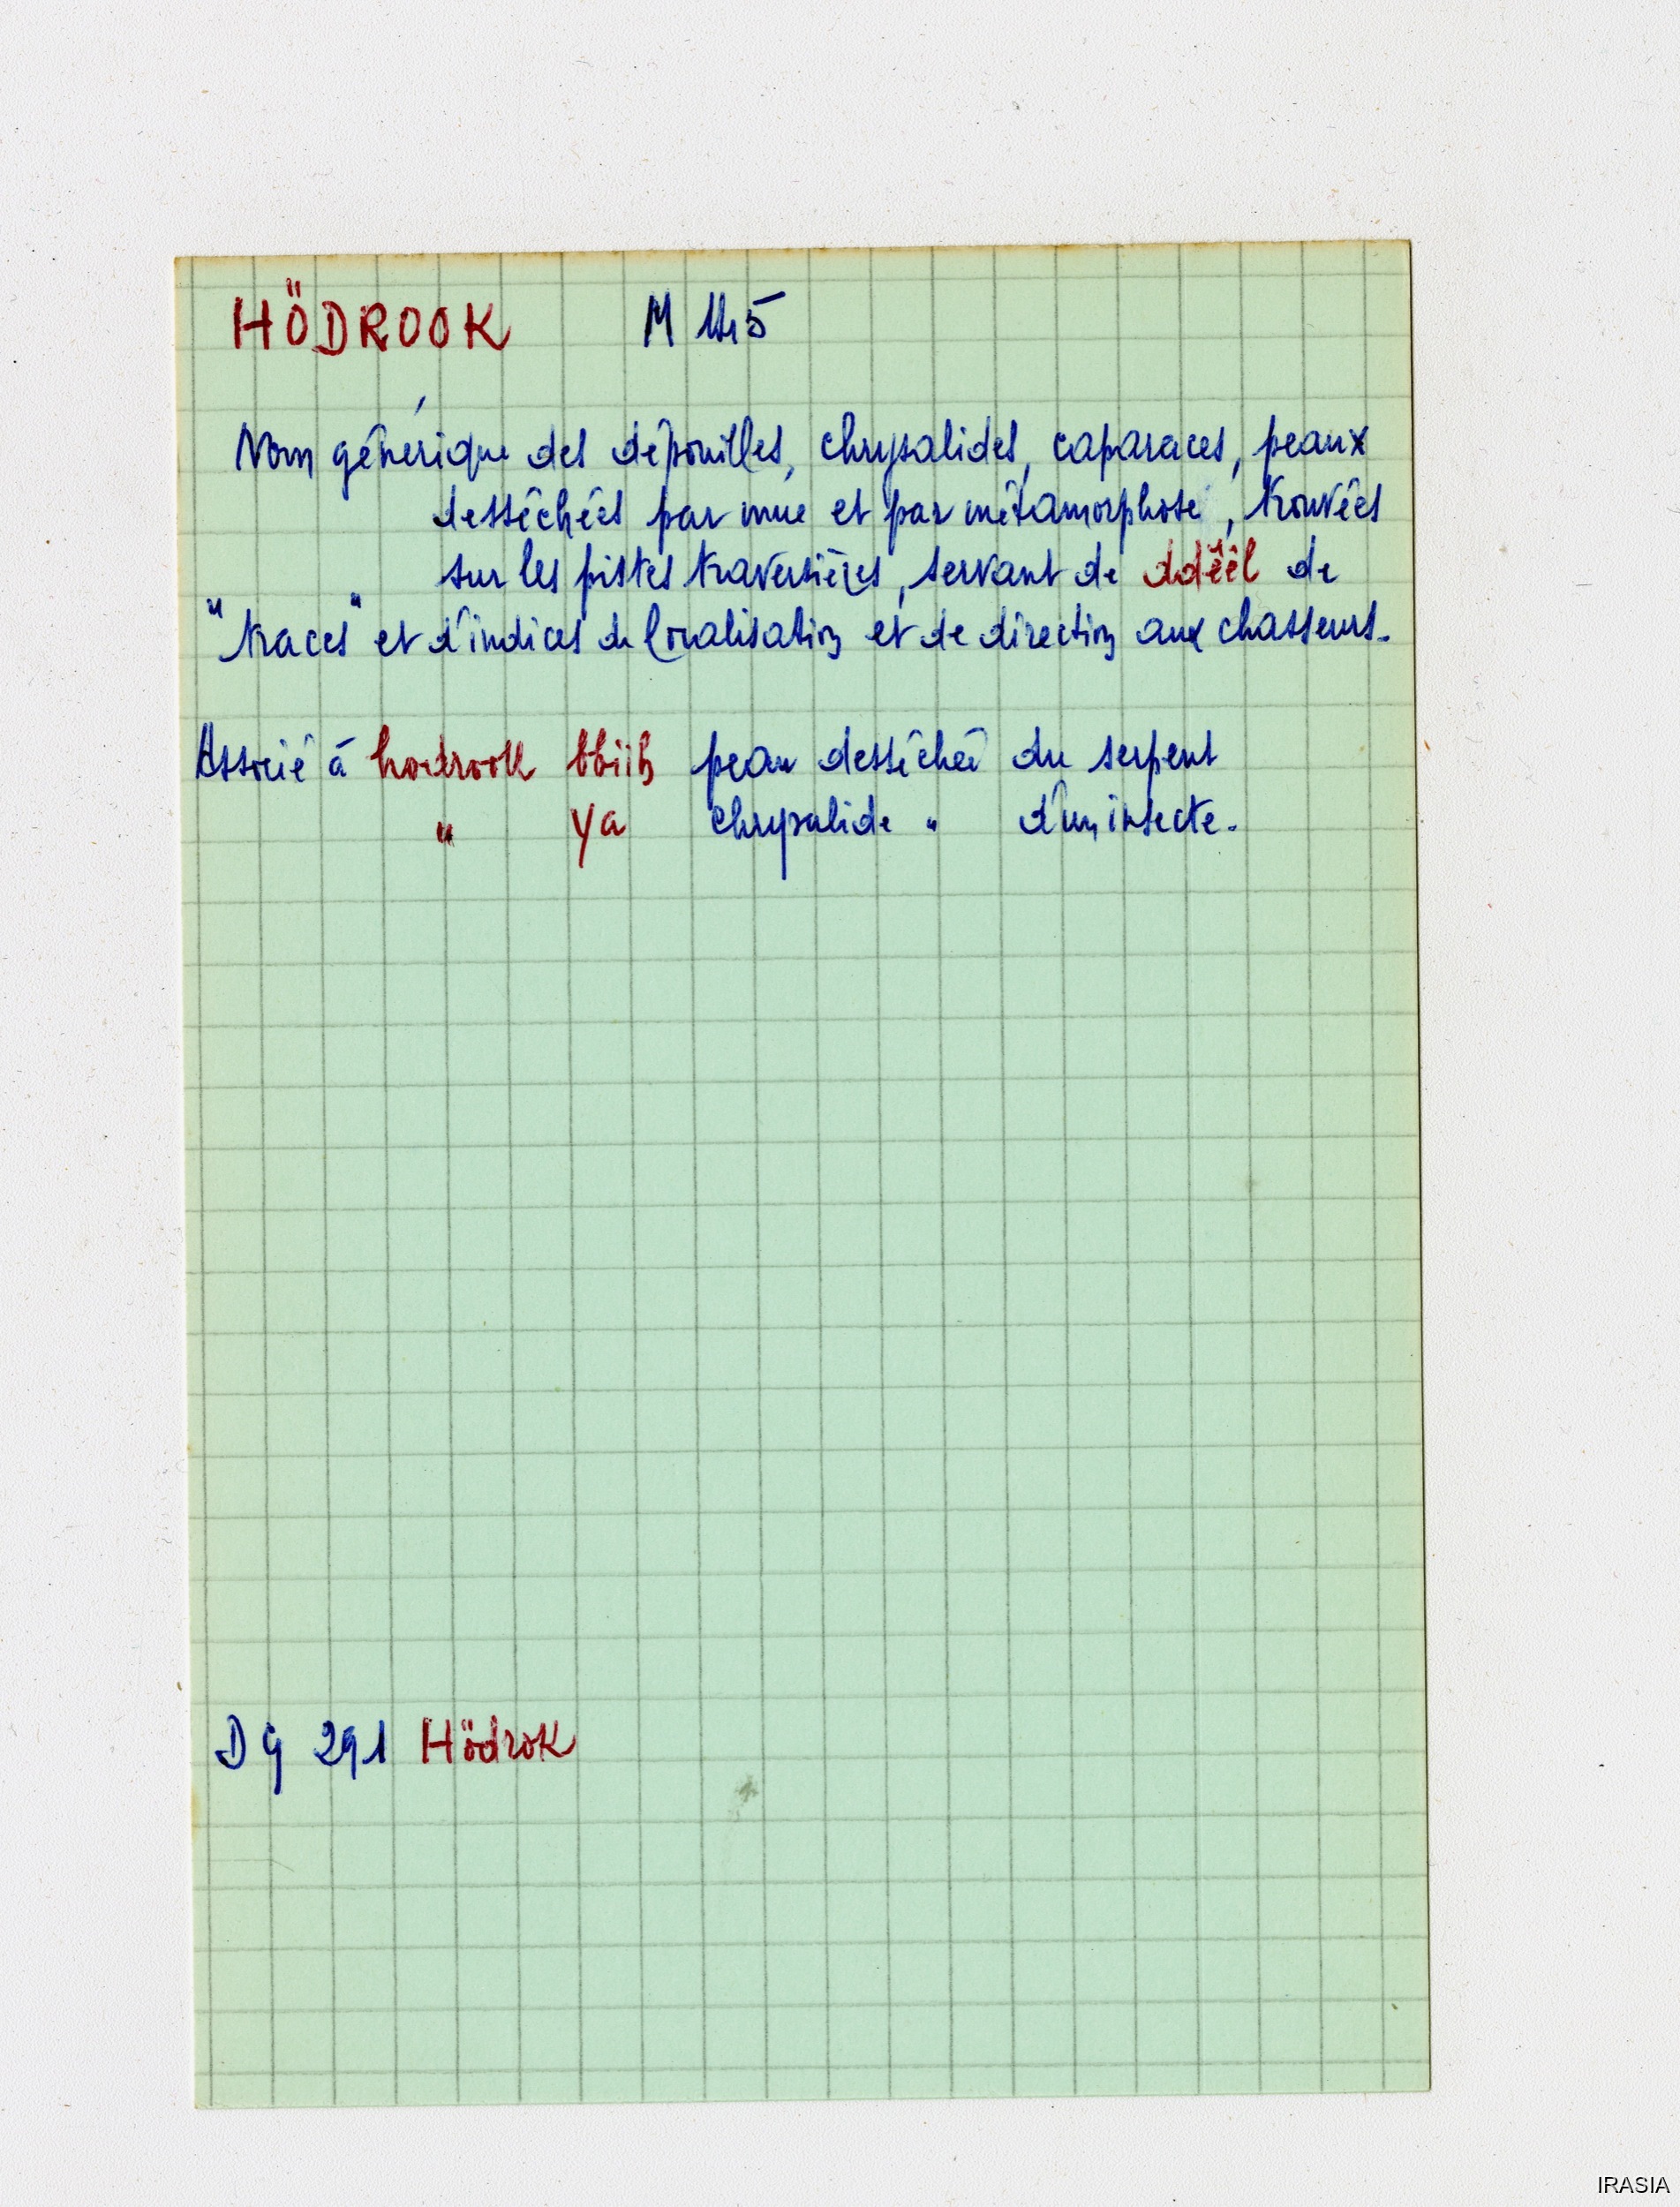 HÖDROOK M 1145
Nom générique des dépouilles, chrysalides, caparaces, peaux
desséchées par mue et par métamorphose, trouvées
sur les pistes traversières, servant de ddëël de
"traces" et d'indices de localisation et de direction aux chasseurs.
Associé à hodrook bbiih peau desséchée du serpent
" ya chrysalide " d'un insecte.
D G 291 Hödrok
IRASIA